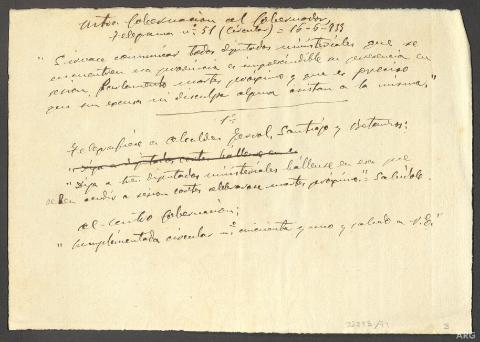 Mtro. Gobernación al Gobernador
Telegrama nº 51 (circular) = 16-6-933
"Sirvase comunicar todos diputados ministeriales que se
encuentren esa provincia es imprescindible su presencia en
sesión Parlamento martes próximo y que es preciso
que sin excusa ni disculpa alguna asistan a la misma."
1º
Telegrafiese a Alcaldes Ferrol, Santiago y Betanzos:
"Diga a diputados cortes hallense en e
"Diga a tres diputados ministeriales hallense en esa que
deben acudir a sesion cortes celebrarase martes próximo." Saludole.
Al Mtro Gobernación:
"Cumplimentada circular nº cincuenta y uno y saludo a V.E."
22293/41
3
ARG